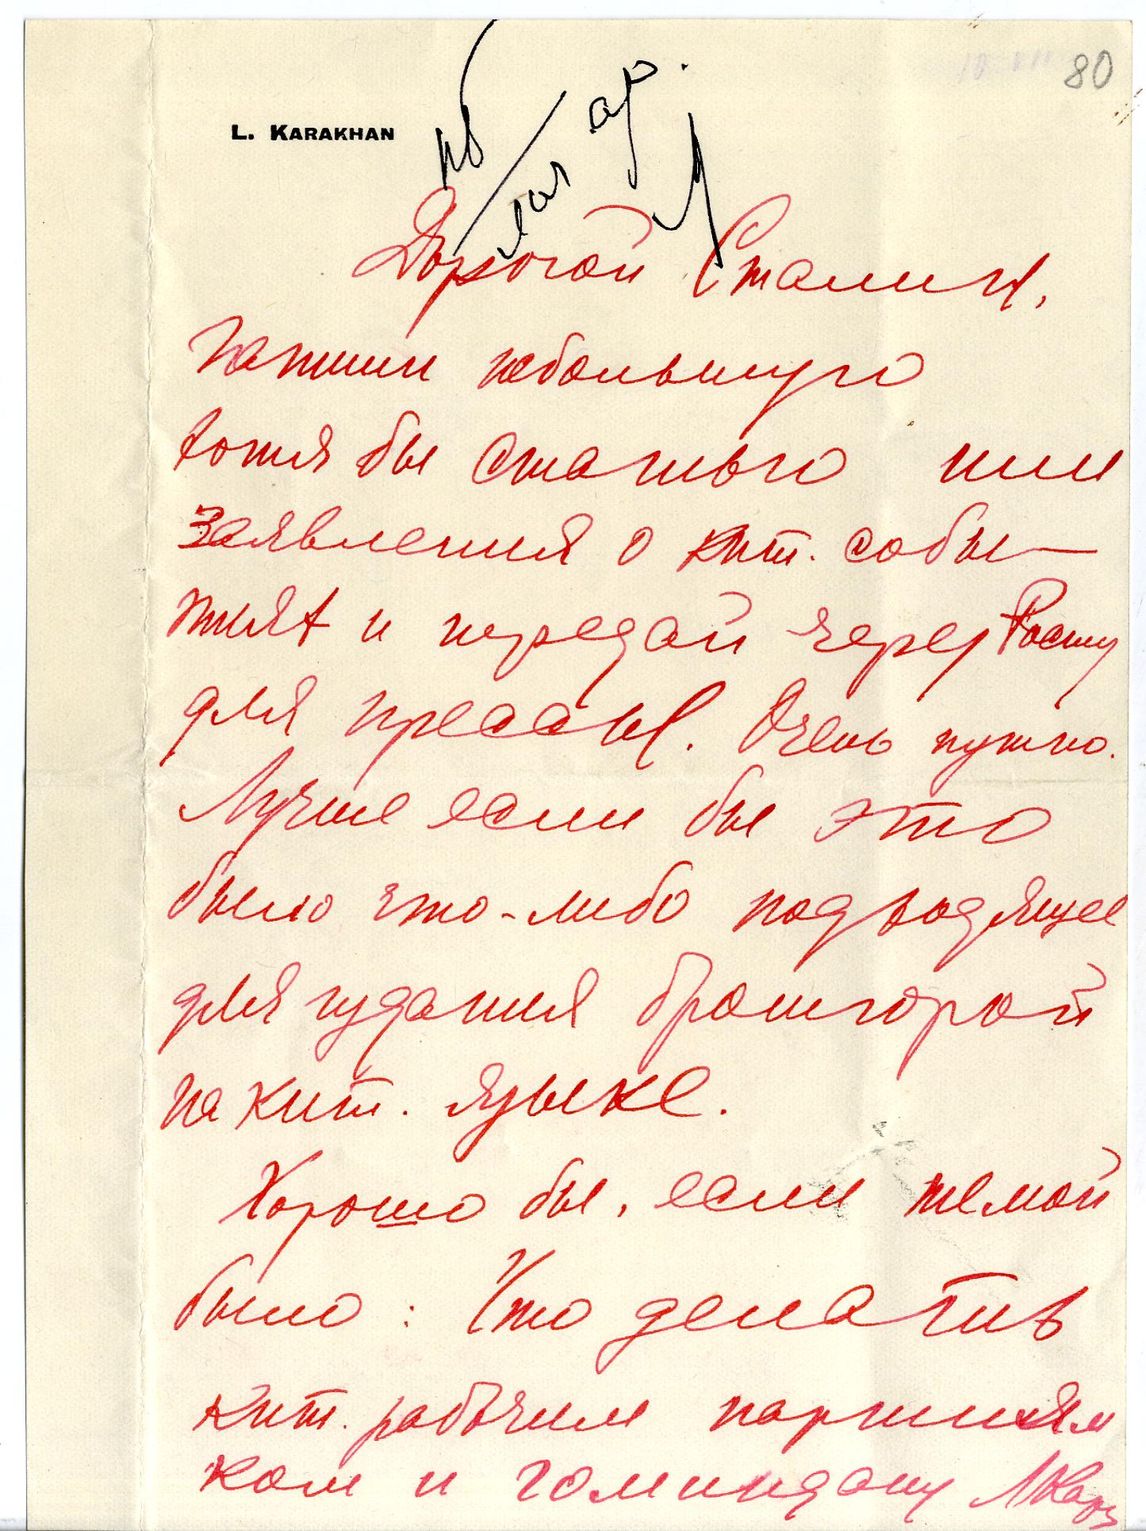 80
L. KARAKHAN
ар.
Дорогой Сталин,
напиши небольшую
хотя бы статью или
заявления о кит. собы-
тиях и передай через Росту
для прессы. Очень нужно.
Лучше если бы это
было что-либо подходящее
для издания брошюрой
на кит. языке.
Хорошо бы, если темой
было: Что делать
кит. рабочим партиям
ком и гоминдану ЛКара